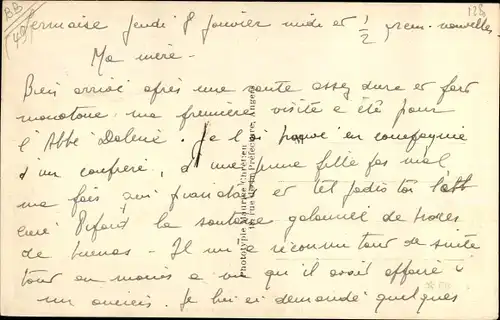 BB
(49)
128
Germaise Jeudi 8 Janvier midi et 1/2 prem. nouvelles
Ma mère -
Bien arrivé après une route assez dure et fort
monotone. ma première visite a été pour
l'Abbé Je l'ai trouvé en compagnie
d'un confrère, d'une jeune fille pas mal
ma fois qui et tel jadis ton
curé la soutane de
de - Il m'a reconnu tout de suite
tout au moins a vu qu'il avait affaire à
un ancien. Je lui ai demandé quelques
Phototypie Maurice Chrétien
rue de la Préfecture, Angers